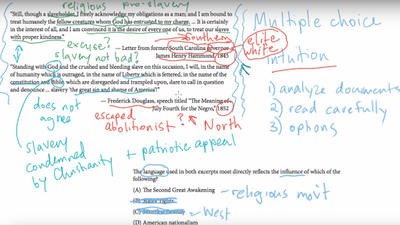 religious pro-slavery
"Still, though a slaveholder, I freely acknowledge my obligations as a man; and I am bound to
treat humanely the fellow creatures whom God has entrusted to my charge. ... It is certainly
in the interest of all, and I am convinced it is the desire of every one of us, to treat our slaves
with proper kindness."
Southern
excuse?
— Letter from former South Carolina governor
James Henry Hammond, 1845
slavery not bad?
elite
white
"Standing with God and the crushed and bleeding slave on this occasion, I will, in the name
of humanity which is outraged, in the name of liberty which is fettered, in the name of the
constitution and Bible, which are disregarded and trampled upon, dare to call in question
and denounce ... slavery 'the great sin and shame of America'!"
— Frederick Douglass, speech titled "The Meaning of
July Fourth for the Negro," 1852
does not
agree
escaped
abolitionist?
North
slavery
condemned
by Christianity
+ patriotic appeal
The language used in both excerpts most directly reflects the influence of which of the
following?
(A) The Second Great Awakening – religious mov't
(B) States' rights
(C) Manifest Destiny – West
(D) American nationalism
Multiple choice
intuition
1) analyze documents
2) read carefully
3) options